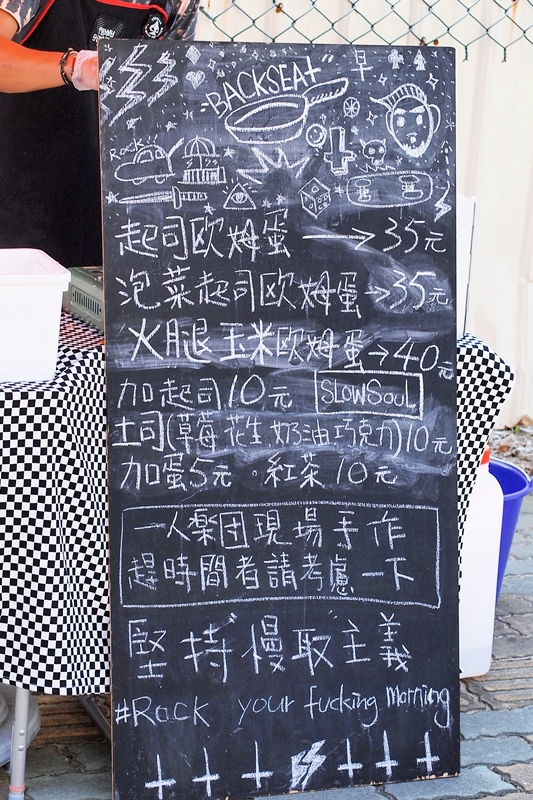 BACKSEAT 早
Rock
起司欧姆蛋 → 35元
泡菜起司欧姆蛋→35元
火腿玉米欧姆蛋→40元
加起司10元 SLOWSOUL
土司(草莓花生奶油巧克力)10元
加蛋5元。紅茶10元
一人樂団現場手作
趕時間者請考慮一下
堅持慢取主義
#Rock your fucking Morning